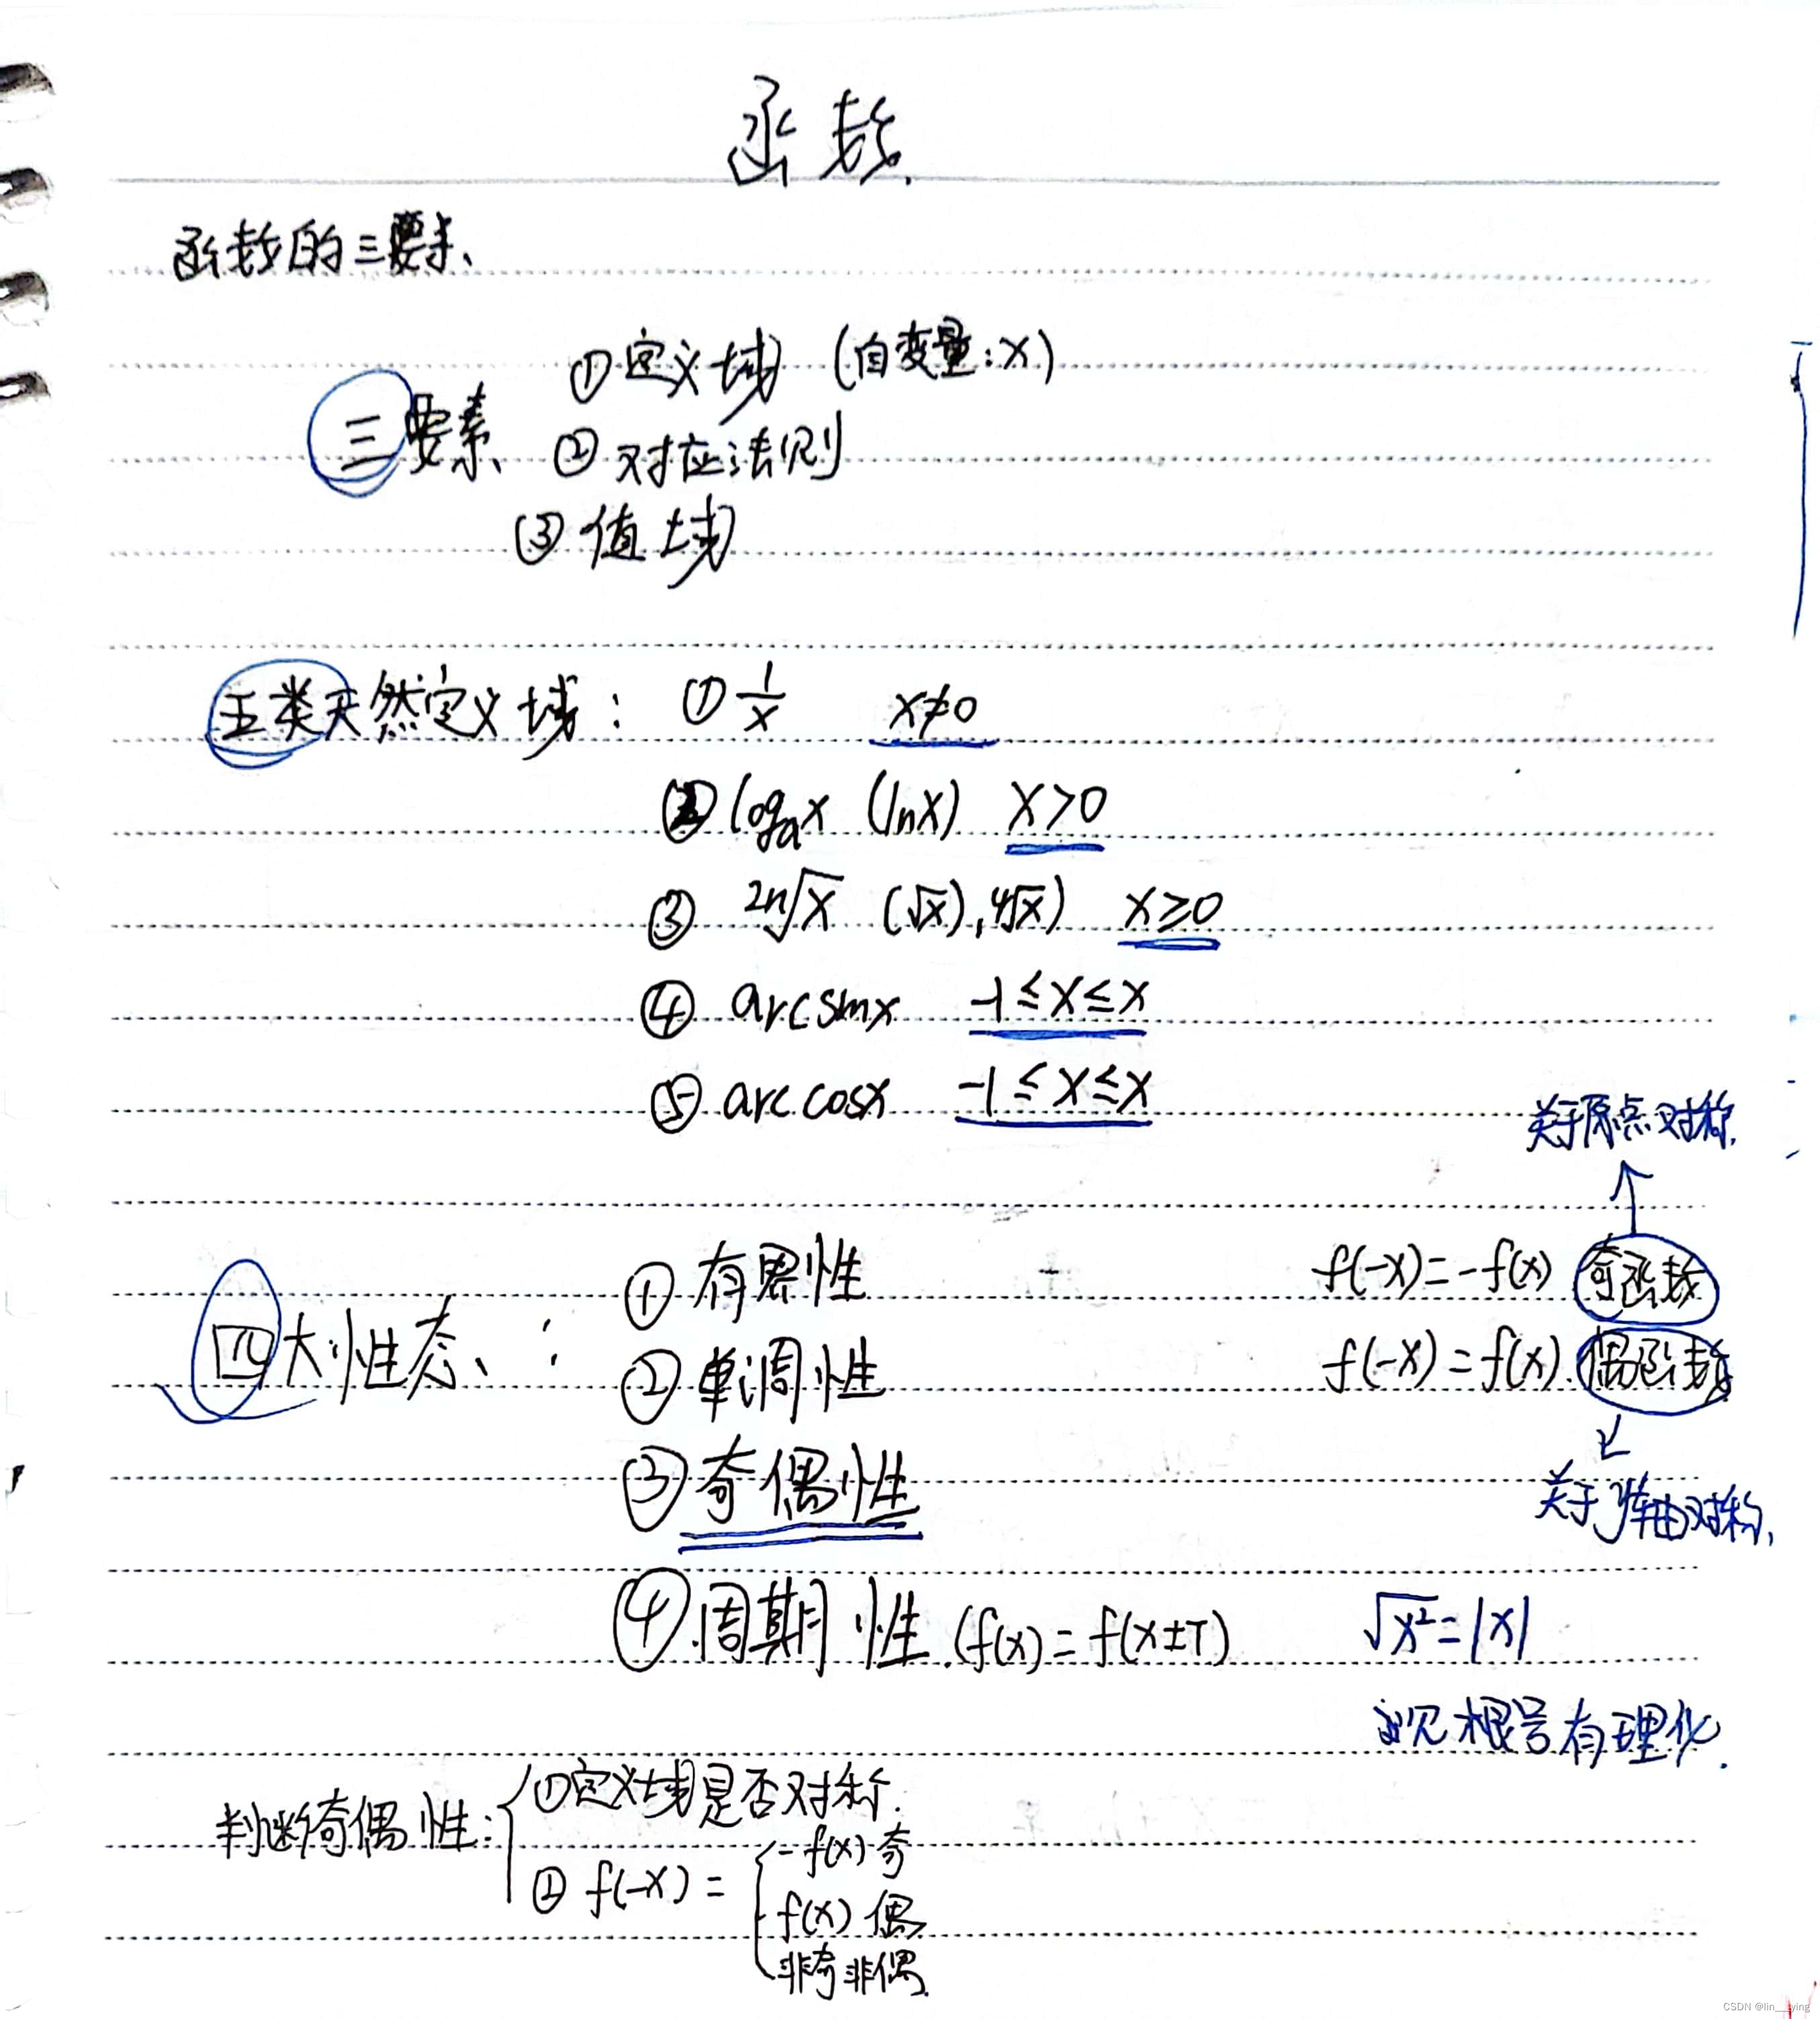 函数.
函数的三要求、
①定义域 (自变量:x)
三要素、②对应法则
③值域
五类天然定义域: ① 1/x x≠0
② logₐx (lnx) x>0
③ ²ⁿ√x (√x), ⁴√x) x≥0
④ arcsinx -1≤x≤x
⑤ arccosx -1≤x≤x
关于原点对称.
①有界性 f(-x)=-f(x) 奇函数
四大性态、:
②单调性 f(-x)=f(x). 偶函数
③奇偶性
关于y轴对称,
④.周期性.(f(x)=f(x±T) √x²=|x|
见根号有理化.
判断奇偶性: ①定义域是否对称.
② f(-x)= -f(x) 奇
f(x) 偶
非奇非偶.
CSDN @lin__ying